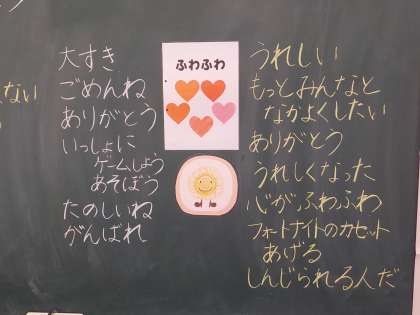 ない
大すき
ごめんね
ありがとう
いっしょに
ゲームしよう
あそぼう
たのしいね
がんばれ
ふわふわ
うれしい
もっとみんなと
なかよくしたい
ありがとう
うれしくなった
心がふわふわ
フォートナイトのカセット
あげる
しんじられる人だ